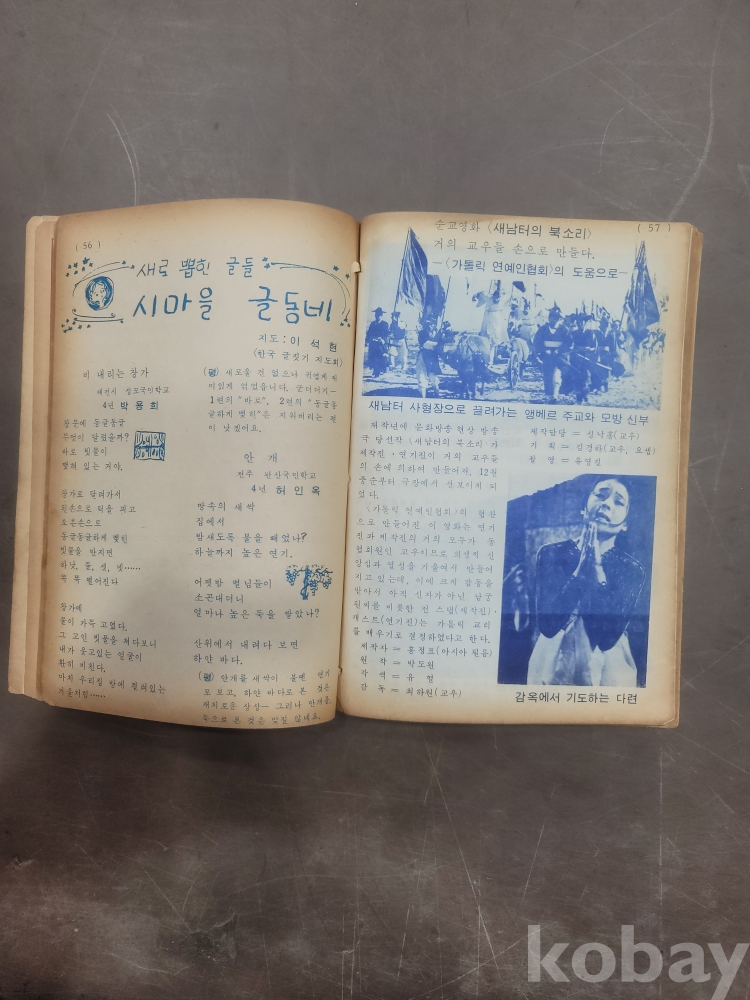 ( 56 )
새로 뽑힌 글들
시마을 글동네
지도 : 이 석 현
(한국 글짓기 지도회)
비 내리는 창가
4년 박 풍 희
창문에 동글동글
무엇이 달렸을까?
바로 빗물이
맺혀 있는 거야.
창가로 달려가서
왼손으로 턱을 괴고
오른손으로
동글동글하게 맺힌
빗물을 만지면
하낫, 둘, 셋, 넷……
똑 똑 떨어진다
창가에
물이 가득 고였다.
그 고인 빗물을 쳐다보니
내가 웃고있는 얼굴이
환히 비친다.
마치 우리집 방에 걸려있는
거울처럼……
(평) 새로울 건 없으나 귀엽게 재
미있게 엮었읍니다. 군더더기—
1련의 "바로", 2련의 "동글동
글하게 맺힌"은 지워버리는 편
이 낫겠어요.
안 개
전주 완산국민학교
4년 허 인 옥
방속의 새싹
집에서
밤새도록 불을 때었나?
하늘까지 높은 연기.
어젯밤 별님들이
소곤대더니
얼마나 높은 둑을 쌓았나?
산위에서 내려다 보면
하얀 바다.
(평) 안개를 새싹이 불땐 연기
로 보고, 하얀 바다로 본 것은
재치로운 상상— 그러나 안개를
둑으로 본 것은 맞질 않네요.
( 57 )
순교영화 〈새남터의 북소리〉
거의 교우들 손으로 만들다.
—〈가톨릭 연예인협회〉의 도움으로—
새남터 사형장으로 끌려가는 앵베르 주교와 모방 신부
재작년에 문화방송 현상 방송
극 당선작 〈새남터의 북소리〉가
제작진·연기진이 거의 교우들
의 손에 의하여 만들어져, 12월
중순부터 극장에서 선보이게 되
었다.
〈가톨릭 연예인협회〉의 협찬
으로 만들어진 이 영화는 연기
진과 제작진의 거의 모두가 동
협회원인 교우이므로 희생적 신
앙심과 열성을 기울여서 만들어
지고 있는데, 이에 크게 감동을
받아서 아직 신자가 아닌 남궁
원씨를 비롯한 전 스탭(제작진)·
캐스트(연기진)는 가톨릭 교리
를 배우기로 결정하였다고 한다.
제작자 = 홍정표(아시아 필음)
원 작 = 박도원
각 색 = 유 열
감 독 = 최하원(교우)
제작담당 = 성낙훈(교우)
기 획 = 김경하(교우, 요셉)
촬 영 = 유영길
감옥에서 기도하는 다련
kobay